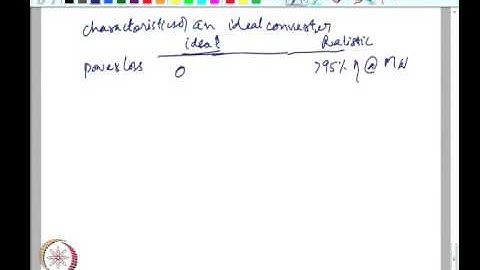 characteristics of an ideal converter
ideal Realistic
power loss 0 >95% η @ MW